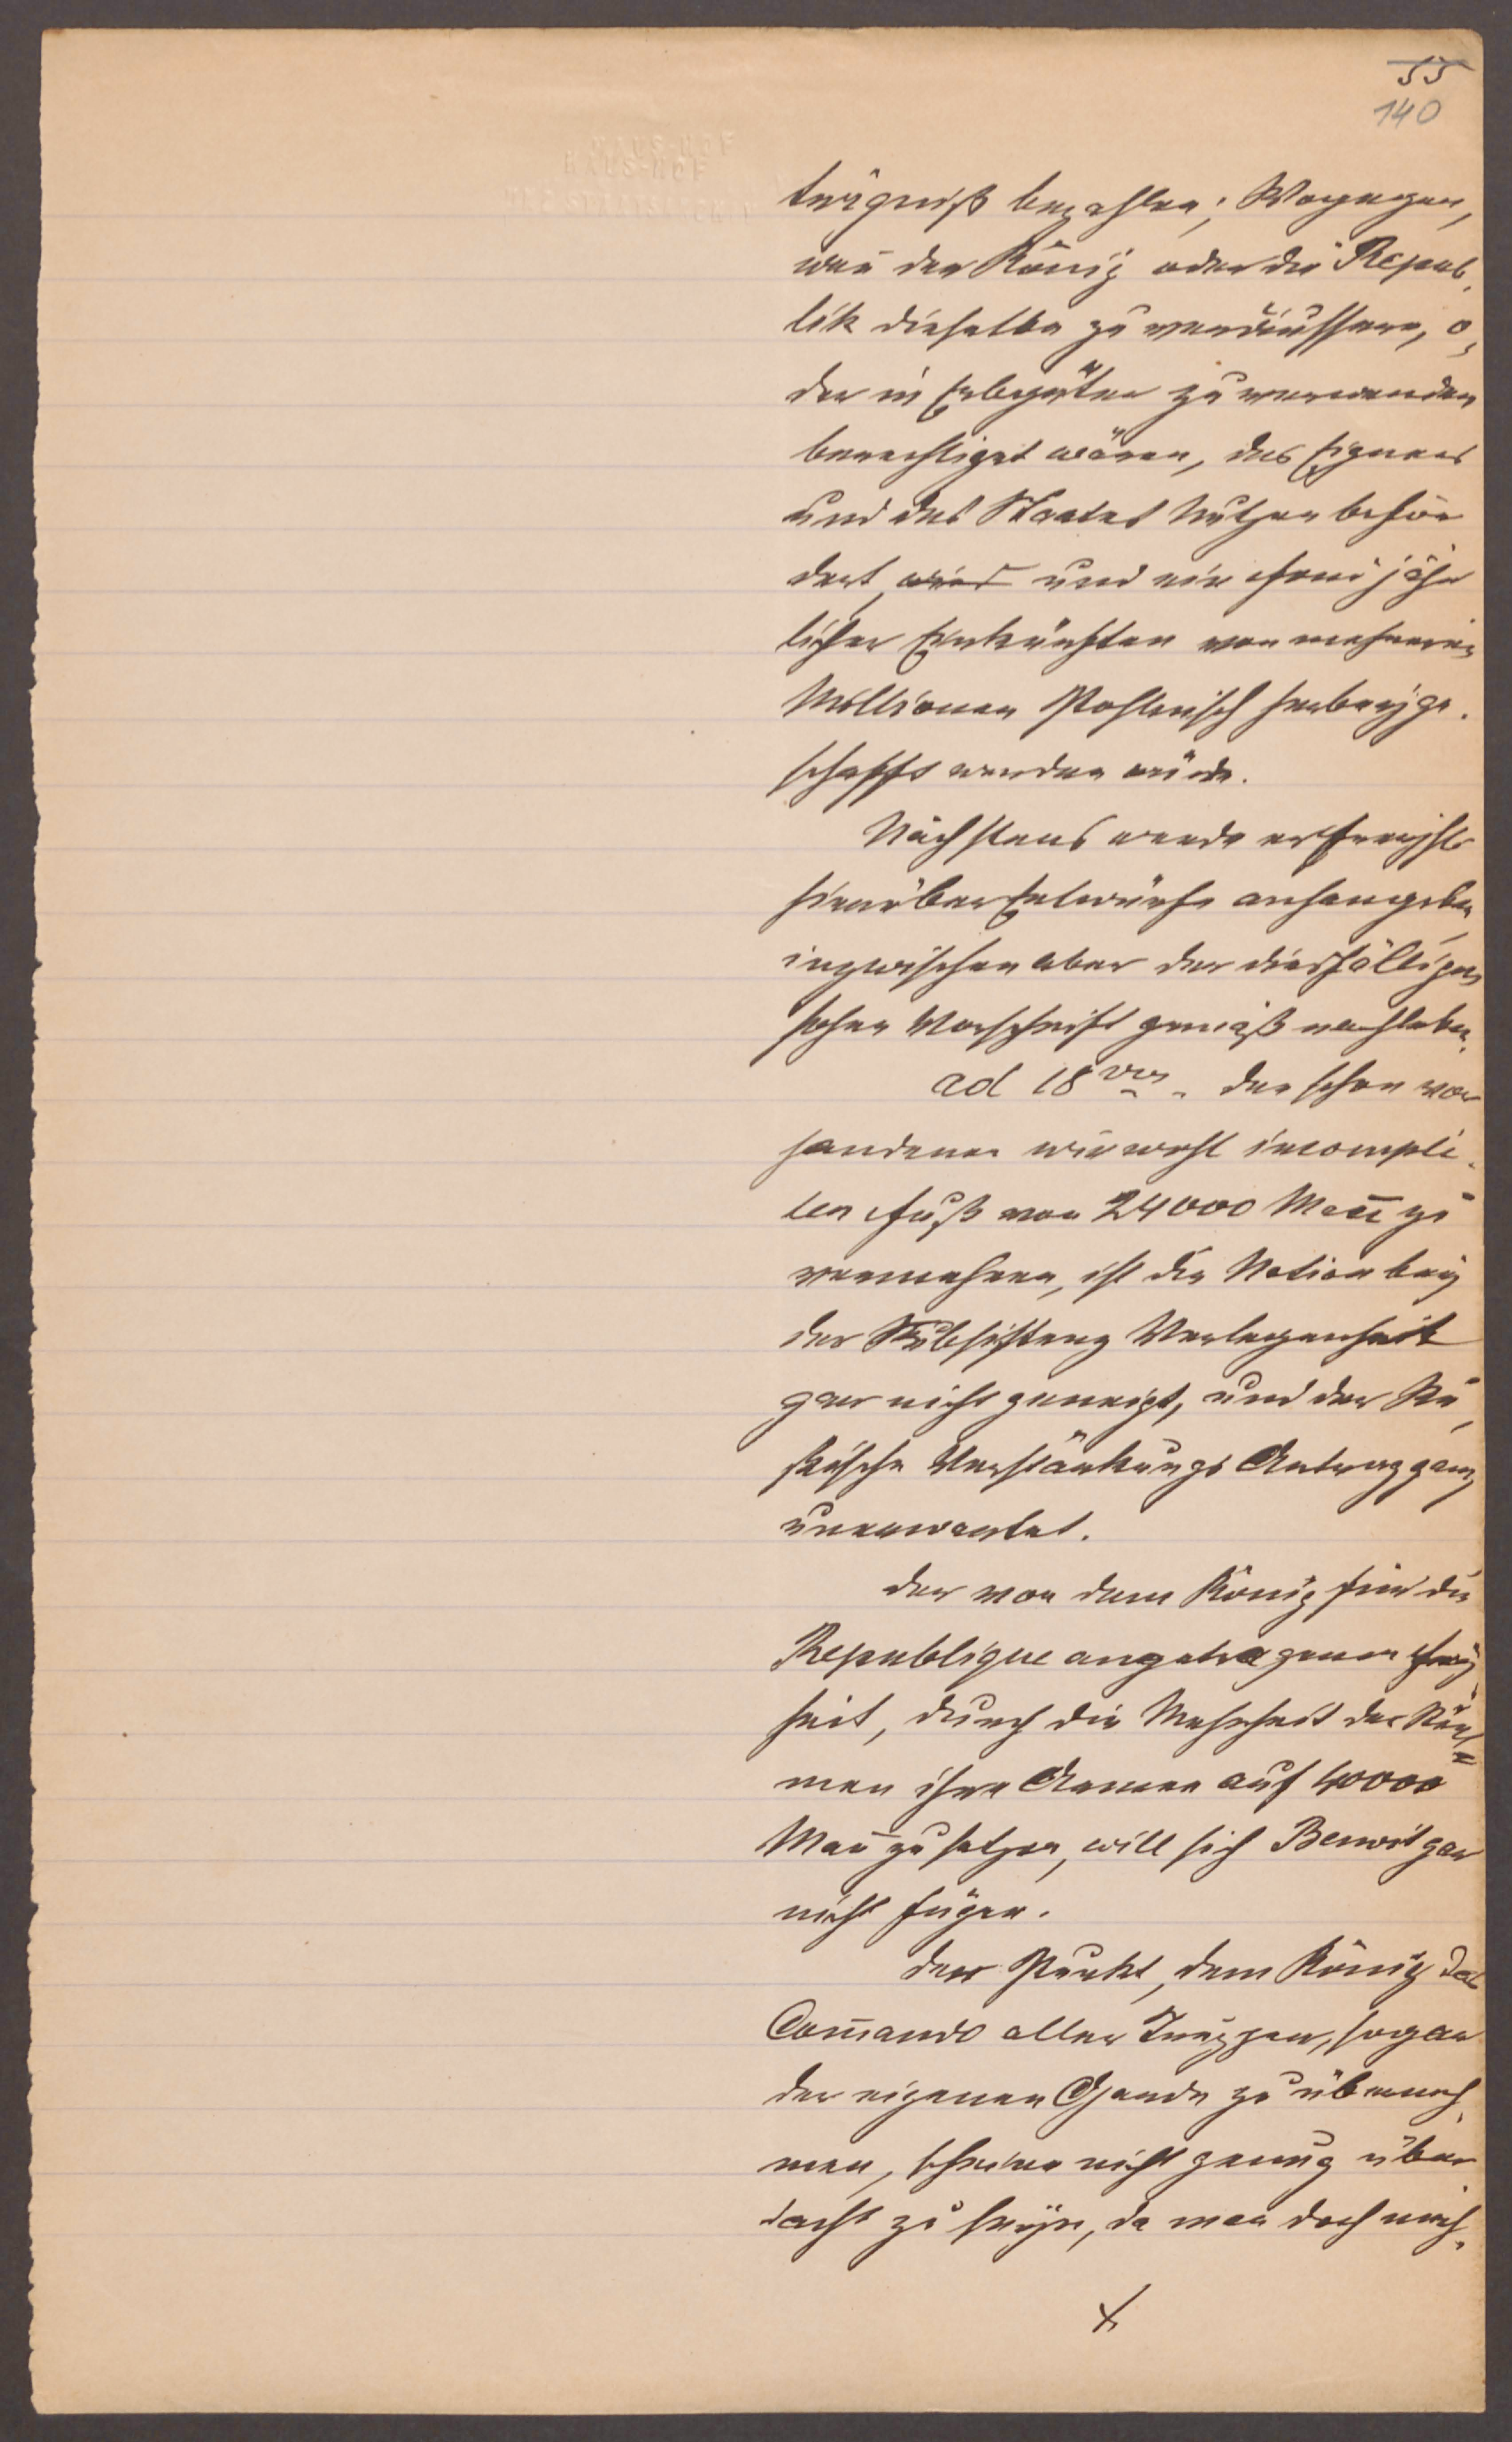 55
140
HAUS-HOF
HAUS-HOF
trägniß bezahlen; Wogegen,
wen̄ der König oder die Repub,
lik dieselbe zu veräussern, o,
der in Erbgüter zu verwenden
berechtiget wären, des Eigners
und des Staates Nutzen beför
dert, wird und ein Fond jähr
licher Einkünften von mehreren
Millionen Pohlnisch herbeyge.
schafft werden würde.
Nächstens werde er
hierüber Entwürfe anhero geben,
inzwischen aber der diesfälligen
hohen Vorschrift gemäß nachleben.
ad 18vum. den schon vor
handenen wiewohl incomple.
ten Fuß von 24000 Man̄ zu
vermehren, ist die Nation bey
der Subsistenz Verlegenheit
gar nicht geneigt, und der
Verstärkungs Antrag ganz
unerwartet.
Der von dem König für die
Republique angetragenen Frey
heit, durch die Mehrheit der Stim̄
men ihre Armee auf 40000
Man̄ zu setzen, will sich Benoit gar
nicht fügen.
Der Punkt, dem König das
Com̄ando aller Truppen, sogar
der eigenen Garde zu überneh
men, scheine nicht genug über
dacht zu seyn, da man doch nich.